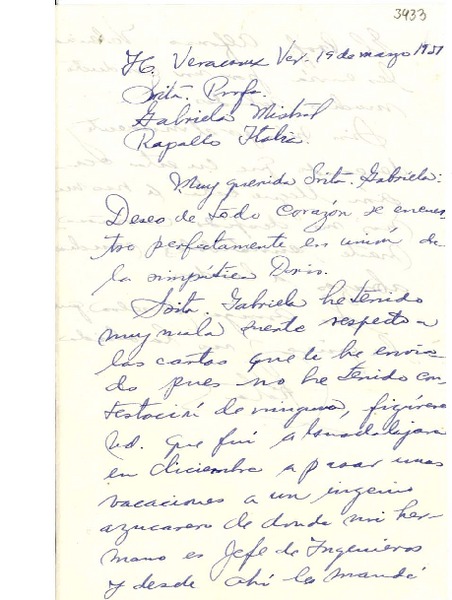 3933
H. Veracruz Ver. 19 de marzo 1951
Srita. Profa.
Gabriela Mistral
Rapallo Italia.
Muy querida Srita. Gabriela:
Deseo de todo corazón se encuen
tre perfectamente en unión de
la simpática Doris.
Srita. Gabriela he tenido
muy mala suerte respecto a
las cartas que le he envia
do pues no he tenido con
testación de ninguna, figúrese
Ud. que fuí a Guadalajara
en diciembre a pasar unas
vacaciones a un ingenio
azucarero de donde mi her-
mano es Jefe de Ingenieros
y desde ahí le mandé